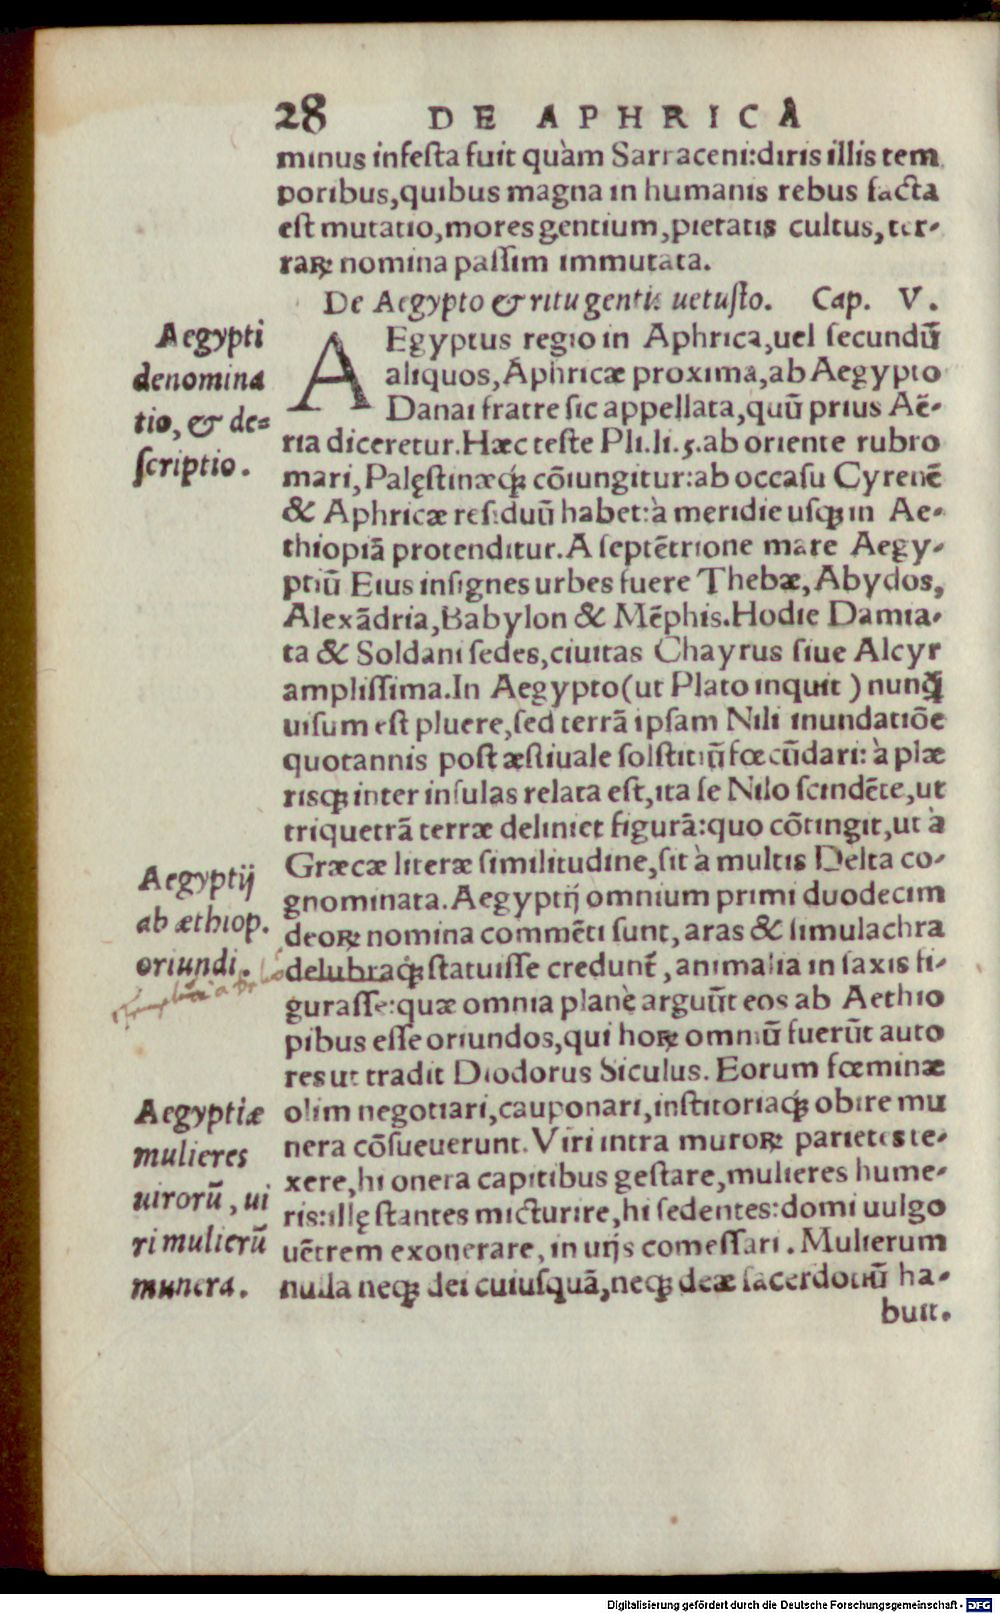 28 DE APHRICA
minus infesta fuit quàm Sarraceni:diris illis tem
poribus,quibus magna in humanis rebus facta
est mutatio,mores gentium,pietatis cultus,ter-
rarꝝ nomina passim immutata.
De Aegypto & ritu gentis uetusto. Cap. V.
Aegypti
denomina
tio, & de=
scriptio.
AEgyptus regio in Aphrica,uel secundũ
aliquos,Aphricæ proxima,ab Aegypto
Danai fratre sic appellata,quũ prius Aẽ-
ria diceretur.Hæc teste Pli.li.5.ab oriente rubro
mari,Palęstinæq́ꝫ cõiungitur:ab occasu Cyrenẽ
& Aphricæ residuũ habet:à meridie usqꝫ in Ae-
thiopiã protenditur.A septẽtrione mare Aegy-
ptiũ Eius insignes urbes fuere Thebæ,Abydos,
Alexãdria,Babylon & Mẽphis.Hodie Damia-
ta & Soldani sedes,ciuitas Chayrus siue Alcyr
amplissima.In Aegypto(ut Plato inquit)nunꝙ̃
uisum est pluere,sed terrã ipsam Nili inundatiõe
quotannis post æstiuale solstitiũ fœcũdari: à plæ
risqꝫ inter insulas relata est,ita se Nilo scindẽte,ut
triquetrã terræ deliniet figurã:quo cõtingit,ut à
Græcæ literæ similitudine,sit à multis Delta co-
gnominata.Aegyptij omnium primi duodecim
deorꝝ nomina commẽti sunt,aras & simulachra
delubraq́ꝫ statuisse creduntˉ,animalia in saxis fi-
gurasse:quæ omnia planè arguũt eos ab Aethio
pibus esse oriundos,qui horꝝ omniũ fuerũt auto
res ut tradit Diodorus Siculus. Eorum fœminæ
olim negotiari,cauponari,institoriaq́ꝫ obire mu
nera cõsueuerunt. Viri intra murorꝝ parietes te-
xere,hi onera capitibus gestare,mulieres hume-
ris:illę stantes micturire,hi sedentes:domi uulgo
uẽtrem exonerare, in uijs comessari. Mulierum
nulla neqꝫ dei cuiusquã,neqꝫ deæ sacerdotiũ ha-
buit.
Aegyptij
ab æthiop.
oriundi.
Aegyptiæ
mulieres
uirorũ, ui
ri mulierũ
munera.
Digitalisierung gefördert durch die Deutsche Forschungsgemeinschaft - DFG